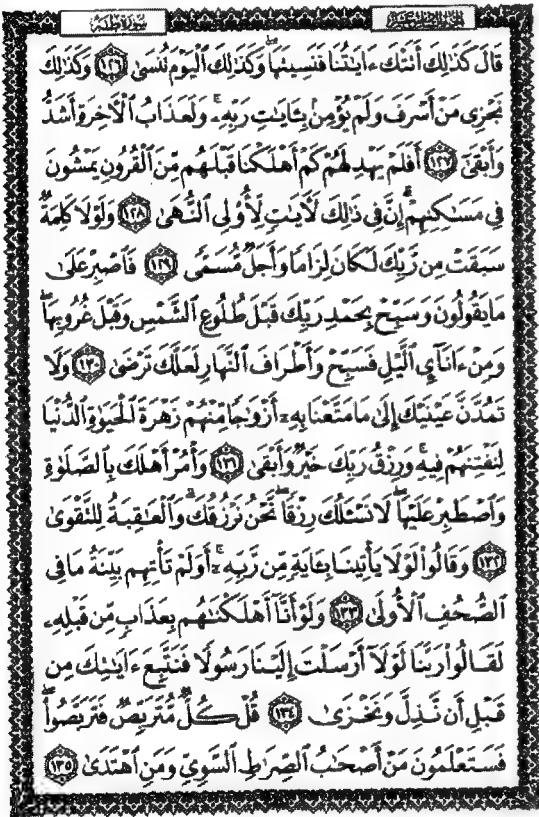 الجزء السادس عشر سورة طه
قَالَ كَذَٰلِكَ أَتَتْكَ ءَايَـٰتُنَا فَنَسِيتَهَا ۖ وَكَذَٰلِكَ ٱلْيَوْمَ تُنسَىٰ ١٢٦ وَكَذَٰلِكَ
نَجْزِى مَنْ أَسْرَفَ وَلَمْ يُؤْمِنۢ بِـَٔايَـٰتِ رَبِّهِۦ ۚ وَلَعَذَابُ ٱلْـَٔاخِرَةِ أَشَدُّ
وَأَبْقَىٰٓ ١٢٧ أَفَلَمْ يَهْدِ لَهُمْ كَمْ أَهْلَكْنَا قَبْلَهُم مِّنَ ٱلْقُرُونِ يَمْشُونَ
فِى مَسَـٰكِنِهِمْ ۗ إِنَّ فِى ذَٰلِكَ لَـَٔايَـٰتٍ لِّأُو۟لِى ٱلنُّهَىٰ ١٢٨ وَلَوْلَا كَلِمَةٌ
سَبَقَتْ مِن رَّبِّكَ لَكَانَ لِزَامًا وَأَجَلٌ مُّسَمًّى ١٢٩ فَٱصْبِرْ عَلَىٰ
مَا يَقُولُونَ وَسَبِّحْ بِحَمْدِ رَبِّكَ قَبْلَ طُلُوعِ ٱلشَّمْسِ وَقَبْلَ غُرُوبِهَا ۖ
وَمِنْ ءَانَآئِ ٱلَّيْلِ فَسَبِّحْ وَأَطْرَافَ ٱلنَّهَارِ لَعَلَّكَ تَرْضَىٰ ١٣٠ وَلَا
تَمُدَّنَّ عَيْنَيْكَ إِلَىٰ مَا مَتَّعْنَا بِهِۦٓ أَزْوَٰجًا مِّنْهُمْ زَهْرَةَ ٱلْحَيَوٰةِ ٱلدُّنْيَا
لِنَفْتِنَهُمْ فِيهِ ۚ وَرِزْقُ رَبِّكَ خَيْرٌ وَأَبْقَىٰ ١٣١ وَأْمُرْ أَهْلَكَ بِٱلصَّلَوٰةِ
وَٱصْطَبِرْ عَلَيْهَا ۖ لَا نَسْـَٔلُكَ رِزْقًا ۖ نَّحْنُ نَرْزُقُكَ ۗ وَٱلْعَـٰقِبَةُ لِلتَّقْوَىٰ
١٣٢ وَقَالُوا۟ لَوْلَا يَأْتِينَا بِـَٔايَةٍ مِّن رَّبِّهِۦٓ ۚ أَوَلَمْ تَأْتِهِم بَيِّنَةُ مَا فِى
ٱلصُّحُفِ ٱلْأُولَىٰ ١٣٣ وَلَوْ أَنَّآ أَهْلَكْنَـٰهُم بِعَذَابٍ مِّن قَبْلِهِۦ
لَقَالُوا۟ رَبَّنَا لَوْلَآ أَرْسَلْتَ إِلَيْنَا رَسُولًا فَنَتَّبِعَ ءَايَـٰتِكَ مِن
قَبْلِ أَن نَّذِلَّ وَنَخْزَىٰ ١٣٤ قُلْ كُلٌّ مُّتَرَبِّصٌ فَتَرَبَّصُوا۟ ۖ
فَسَتَعْلَمُونَ مَنْ أَصْحَـٰبُ ٱلصِّرَٰطِ ٱلسَّوِىِّ وَمَنِ ٱهْتَدَىٰ ١٣٥